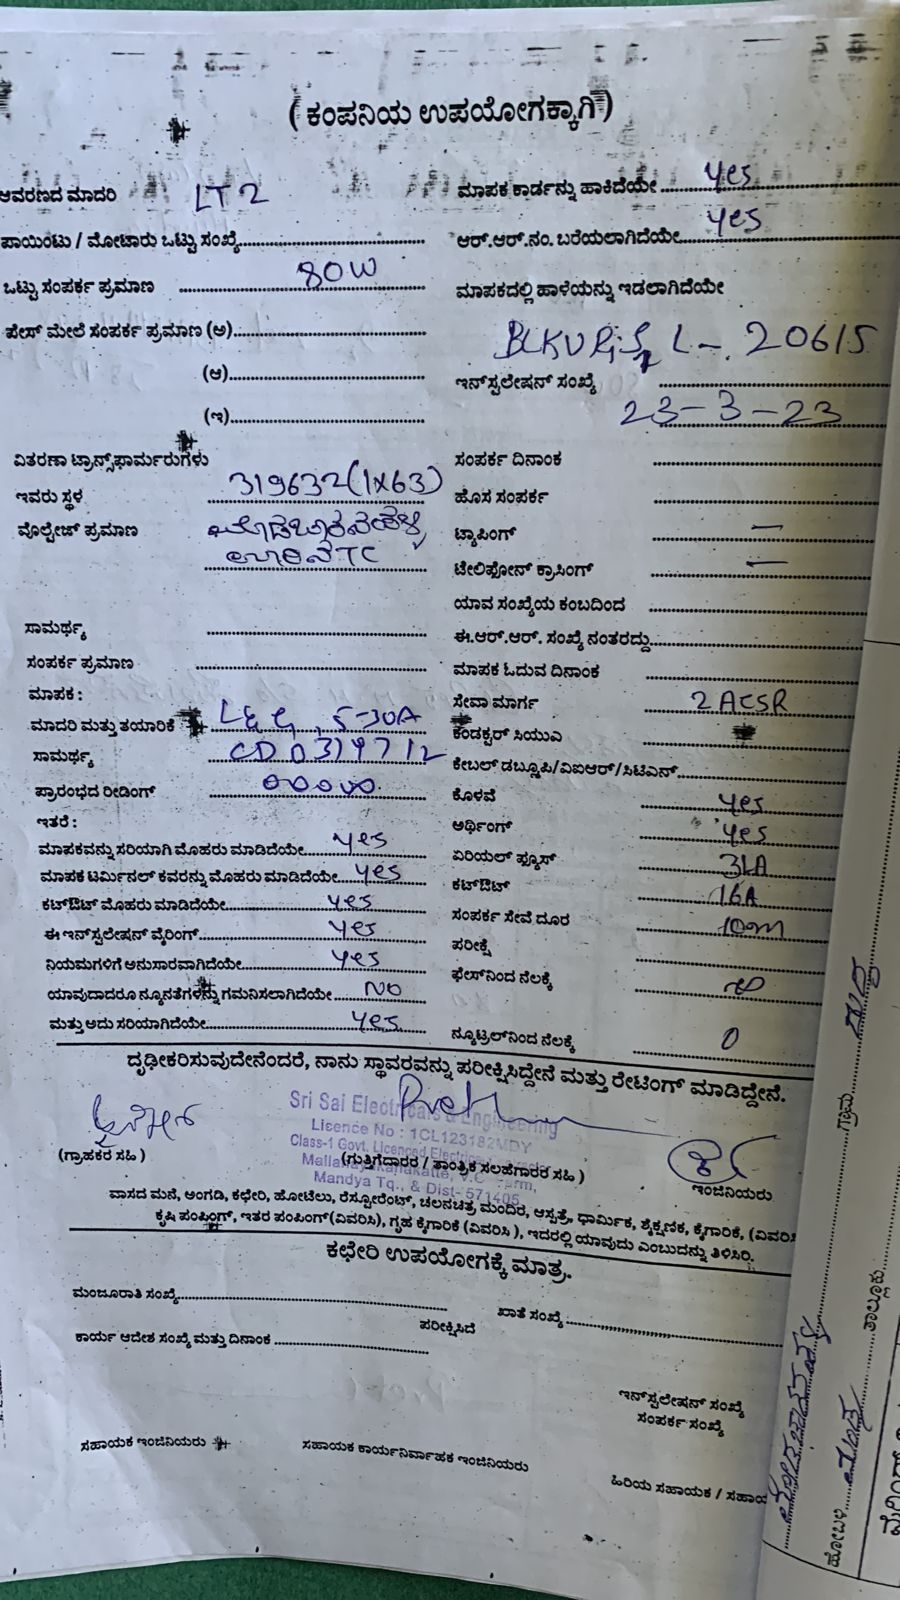 ( ಕಂಪನಿಯ ಉಪಯೋಗಕ್ಕಾಗಿ )
ಆವರಣದ ಮಾದರಿ LT 2
ಮಾಪಕ ಕಾರ್ಡನ್ನು ಹಾಕಿದೆಯೇ yes
ಪಾಯಿಂಟು / ಮೋಟಾರು ಒಟ್ಟು ಸಂಖ್ಯೆ
ಆರ್.ಆರ್.ನಂ. ಬರೆಯಲಾಗಿದೆಯೇ yes
ಒಟ್ಟು ಸಂಪರ್ಕ ಪ್ರಮಾಣ 80W
ಮಾಪಕದಲ್ಲಿ ಹಾಳೆಯನ್ನು ಇಡಲಾಗಿದೆಯೇ
ಪೇಸ್ ಮೇಲೆ ಸಂಪರ್ಕ ಪ್ರಮಾಣ (ಅ)
L - 20615
(ಆ)
ಇನ್‌ಸ್ಟಲೇಷನ್ ಸಂಖ್ಯೆ
(ಇ)
23-3-23
ವಿತರಣಾ ಟ್ರಾನ್ಸ್‌ಫಾರ್ಮರುಗಳು
ಸಂಪರ್ಕ ದಿನಾಂಕ
ಇವರು ಸ್ಥಳ 319632(1x63)
ಹೊಸ ಸಂಪರ್ಕ
ವೊಲ್ಟೇಜ್ ಪ್ರಮಾಣ
ಟ್ಯಾಪಿಂಗ್ —
TC
ಟೇಲಿಫೋನ್ ಕ್ರಾಸಿಂಗ್ —
ಯಾವ ಸಂಖ್ಯೆಯ ಕಂಬದಿಂದ
ಸಾಮರ್ಥ್ಯ
ಈ.ಆರ್.ಆರ್. ಸಂಖ್ಯೆ ನಂತರದ್ದು
ಸಂಪರ್ಕ ಪ್ರಮಾಣ
ಮಾಪಕ ಓದುವ ದಿನಾಂಕ
ಮಾಪಕ :
ಸೇವಾ ಮಾರ್ಗ 2 ACSR
ಮಾದರಿ ಮತ್ತು ತಯಾರಿಕೆ L&G, 5-30A
ಕಂಡಕ್ಟರ್ ಸಿಯುಎ
ಸಾಮರ್ಥ್ಯ
ಕೇಬಲ್ ಡಬ್ಲ್ಯೂಪಿ/ವಿಐಆರ್/ಸಿಟಿಎಸ್
ಪ್ರಾರಂಭದ ರೀಡಿಂಗ್ 00000
ಕೊಳವೆ yes
ಇತರೆ :
ಅರ್ಥಿಂಗ್ yes
ಮಾಪಕವನ್ನು ಸರಿಯಾಗಿ ಮೊಹರು ಮಾಡಿದೆಯೇ yes
ಏರಿಯಲ್ ಫ್ಯೂಸ್
ಮಾಪಕ ಟರ್ಮಿನಲ್ ಕವರನ್ನು ಮೊಹರು ಮಾಡಿದೆಯೇ yes
ಕಟ್‌ಔಟ್ 16A
ಕಟ್‌ಔಟ್ ಮೊಹರು ಮಾಡಿದೆಯೇ yes
ಸಂಪರ್ಕ ಸೇವೆ ದೂರ 10m
ಈ ಇನ್‌ಸ್ಟಲೇಷನ್ ವೈರಿಂಗ್ yes
ಪರೀಕ್ಷೆ
ನಿಯಮಗಳಿಗೆ ಅನುಸಾರವಾಗಿದೆಯೇ yes
ಫೇಸ್‌ನಿಂದ ನೆಲಕ್ಕೆ
ಯಾವುದಾದರೂ ನ್ಯೂನತೆಗಳನ್ನು ಗಮನಿಸಲಾಗಿದೆಯೇ NO
ಮತ್ತು ಅದು ಸರಿಯಾಗಿದೆಯೇ yes
ನ್ಯೂಟ್ರಲ್‌ನಿಂದ ನೆಲಕ್ಕೆ 0
ದೃಢೀಕರಿಸುವುದೇನೆಂದರೆ, ನಾನು ಸ್ಥಾವರವನ್ನು ಪರೀಕ್ಷಿಸಿದ್ದೇನೆ ಮತ್ತು ರೇಟಿಂಗ್ ಮಾಡಿದ್ದೇನೆ.
Sri Sai Electricals & Engineering
Licence No : 1CL123182MDY
Class-1 Govt. Licenced
(ಗ್ರಾಹಕರ ಸಹಿ )
(ಗುತ್ತಿಗೆದಾರರ / ತಾಂತ್ರಿಕ ಸಲಹೆಗಾರರ ಸಹಿ )
ಇಂಜಿನಿಯರು
Mandya Tq., & Dist- 571405
ವಾಸದ ಮನೆ, ಅಂಗಡಿ, ಕಛೇರಿ, ಹೋಟೆಲು, ರೆಸ್ಟೋರೆಂಟ್, ಚಲನಚಿತ್ರ ಮಂದಿರ, ಆಸ್ಪತ್ರೆ, ಧಾರ್ಮಿಕ, ಶೈಕ್ಷಣಿಕ, ಕೈಗಾರಿಕೆ, (ವಿವರಿಸಿ
ಕೃಷಿ ಪಂಪಿಂಗ್, ಇತರ ಪಂಪಿಂಗ್(ವಿವರಿಸಿ), ಗೃಹ ಕೈಗಾರಿಕೆ (ವಿವರಿಸಿ ), ಇದರಲ್ಲಿ ಯಾವುದು ಎಂಬುದನ್ನು ತಿಳಿಸಿರಿ.
ಕಛೇರಿ ಉಪಯೋಗಕ್ಕೆ ಮಾತ್ರ.
ಮಂಜೂರಾತಿ ಸಂಖ್ಯೆ
ಖಾತೆ ಸಂಖ್ಯೆ
ಪರೀಕ್ಷಿಸಿದೆ
ಕಾರ್ಯ ಆದೇಶ ಸಂಖ್ಯೆ ಮತ್ತು ದಿನಾಂಕ
ಇನ್‌ಸ್ಟಲೇಷನ್ ಸಂಖ್ಯೆ
ಸಂಪರ್ಕ ಸಂಖ್ಯೆ
ಸಹಾಯಕ ಇಂಜಿನಿಯರು
ಸಹಾಯಕ ಕಾರ್ಯನಿರ್ವಾಹಕ ಇಂಜಿನಿಯರು
ಹಿರಿಯ ಸಹಾಯಕ / ಸಹಾಯ
ಗ್ರಾಮ
ಹೋಬಳಿ ಮಂಡ್ಯ ತಾಲ್ಲೂಕು